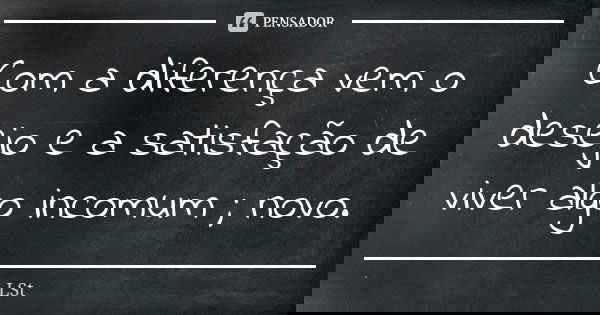 PENSADOR
Com a diferença vem o
desejo e a satisfação de
viver algo incomum ; novo.
LSt